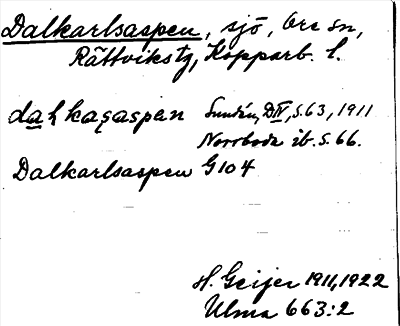 Dalkarlsaspen, sjö, Ore sn,
Rättviks tg, Kopparb. l.
dahkagaspen Sundén, DIV, s. 63, 1911
Norrboda ib. s. 66.
Dalkarlsaspen G104
H. Geijer 1911, 1922
Ulma 663:2